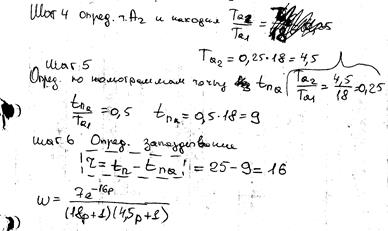 Шаг 4 опред. т. A₂ и находим Ta₂/Ta₁ =
Ta₂ = 0,25·18 = 4,5
Шаг 5
Опред. по номограммам точку tпа Ta₂/Ta₁ = 4,5/18 = 0,25
tпа/Ta₁ = 0,5 tпа = 0,5·18 = 9
шаг 6 Опред. запаздывание
τ = tп - tпа = 25 - 9 = 16
W = 7e^(-16p)/((18p+1)(4,5p+1))